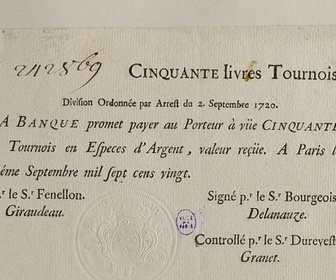 242569 CINQUANTE livres Tournois
Division Ordonnée par Arrest du 2. Septembre 1720.
A BANQUE promet payer au Porteur à vüe CINQUANTE
Tournois en Especes d'Argent, valeur reçüe. A Paris l
éme Septembre mil sept cens vingt.
r le S.r Fenellon. Signé p.r le S.r Bourgeois
Giraudeau. Delanauze.
Controllé p.r le S.r Durevest
Granet.